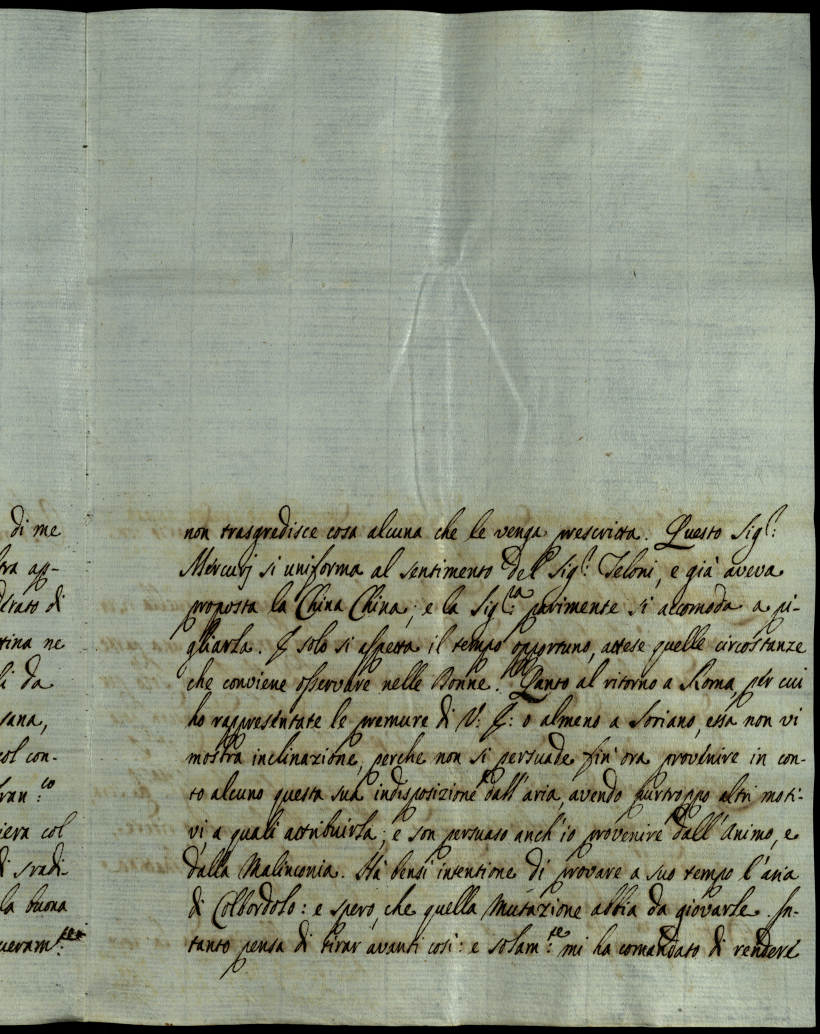 di me
tra ap-
ltato di
tina ne
li da
sana,
col con-
fran:co
iera col
di sradi-
la buona
ueram:te
non trasgredisce cosa alcuna che le venga prescritta. Questo Sig.r:
Mercurj si uniforma al sentimento del Sig.r: Teloni, e già aveva
proposta la China China; e la Sig.ra: parimente si accomoda a pi-
gliarla. E solo si aspetta il tempo opportuno, attese quelle circostanze
che conviene osservare nelle Donne. Quanto al ritorno a Roma, per cui
ho rappresentate le premure di V: E: o almeno a Soriano, essa non vi
mostra inclinazione, perche non si persuade fin' ora provenire in con-
to alcuno questa sua indisposizione dall'aria, avendo purtroppo altri moti-
vi a quali attribuirla; e son persuaso anch'io provenire dall'Animo, e
dalla Malinconia. Hà bensì intentione di provare a suo tempo l'aria
di Colbordolo: e spero, che quella Mutazione abbia da giovarle. In-
tanto pensa di tirar avanti così: e solam:te mi ha comandato di rendere